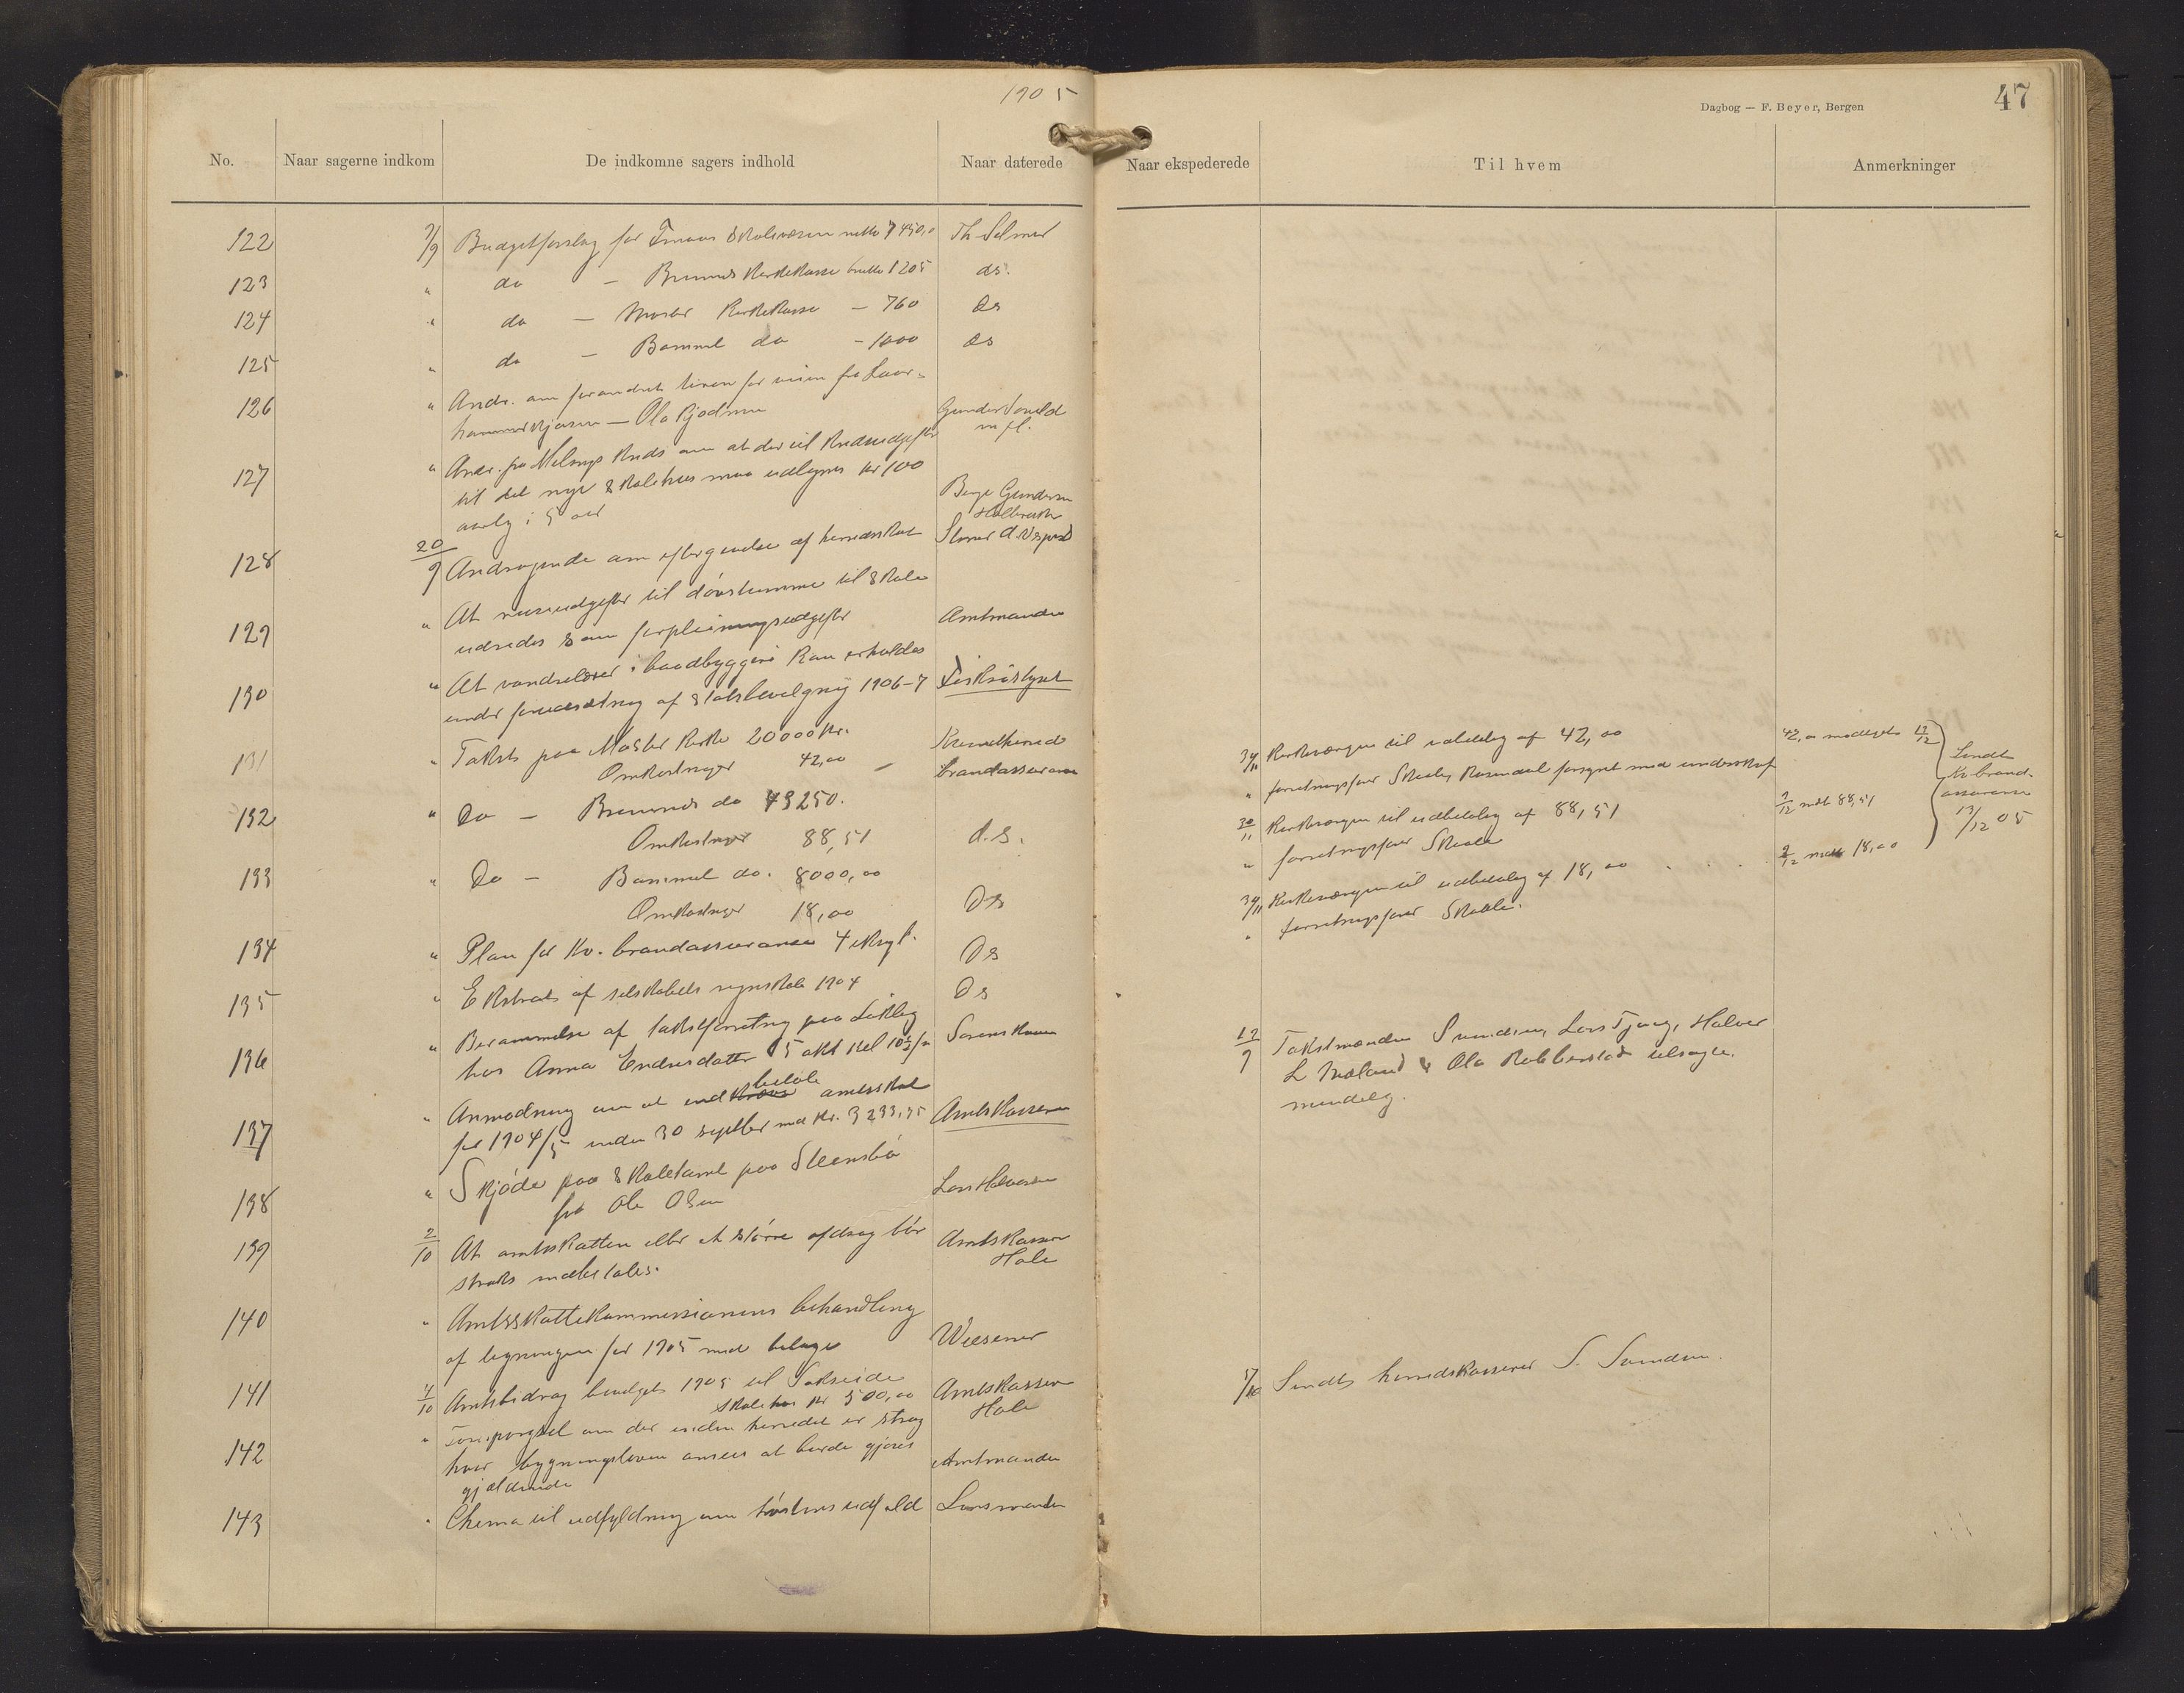 1905
Dagbog — F. Beyer, Bergen
47
No.
Naar sagerne indkom
De indkomne sagers indhold
Naar daterede
Naar ekspederede
Til hvem
Anmerkninger
122 7/9 Budgetforslag for Finnaas Skolevæsen netto 7450,0 Th Selmer
123 " do — Bremnes Kirkekasse brutto 1205 ds.
124 " do — Moster Kirkekasse — 760 Ds
125 " do — Bømmel do — 1000 Ds
126 " Andr. om forandret linon for veien fra
— Ola Gunder
m fl.
127 " Andr. fra Kreds om at der til Kredsudgifter
til det nye Skolehus maa udlignes kr 100
aarlig i 5 aar Gundersen
128 20/9 Andragende om eftergivelse af herredsskat
129 " At reiseudgifter til døvstumme til Skole
udredes som forpleiningsudgifter Amtmanden
130 " At vandrelærer i baadbyggeri kan erholdes
under forudsætning af Statsbevilgning 1906-7 Fiskristyret
131 " Takst paa Moster Kirke 20000 kr.
Omkostninger 42,00 — brandassurance
30/11 Kirkeværgen til udbetaling af 42,00 42,00 modtaget 12/12
" forretningsfører Skaale, Rosendal forsynt med underskrift
132 " Do — Bremnes do 43250.
Omkostninger 88,51 d.s.
30/11 Kirkeværgen til udbetaling af 88,51 9/12 mdt 88,51
" forretningsfører Skaale
133 " Do — Bømmel do. 8000,00
Omkostninger 18,00 Ds
30/11 Kirkeværgen til udbetaling af 18,00 9/12 mdt 18,00
" forretningsfører Skaale.
Sendt
Kv brand-
assurance
13/12 05
134 " Plan for Kv. brandassurance 4 ekspl. Ds
135 " Ekstrakt af selskabets regnskab 1904 Ds
136 " Berammelse af takstforretning paa
hos Anna Endresdatter 5 okt kel 10½ Sorenskriver
22/9 Takstmændene Svendsen, Lars Halvor
L Mæland & Ola Robberstad tilsagte
mundtlig.
137 " Anmodning om at indbetale amtsskat
for 1904/5 inden 30 septbr med kr. 3233,35 Amtskasseren
138 " Skjøde paa Skoletomt paa Steensbø
fra Ole Olsen Lars Halvorsen
139 2/10 At amtsskatten eller et større afdrag bør
straks indbetales. Amtskasserer
Hole
140 " Amtsskattekommissionens behandling
af ligningen for 1905 med bilage Wiesener
141 4/10 Amtsbidrag bevilget 1905 til
Skolehus kr 500,00 Amtskasserer
Hole
5/10 Sendt herredskasserer S. Svendsen.
142 " Forespørgsel om der inden herredet er strøg
hvor bygningsloven ansees at burde gjøres
gjældende Amtmanden
143 " Chema til udfyldning om høstens udfald Lensmanden